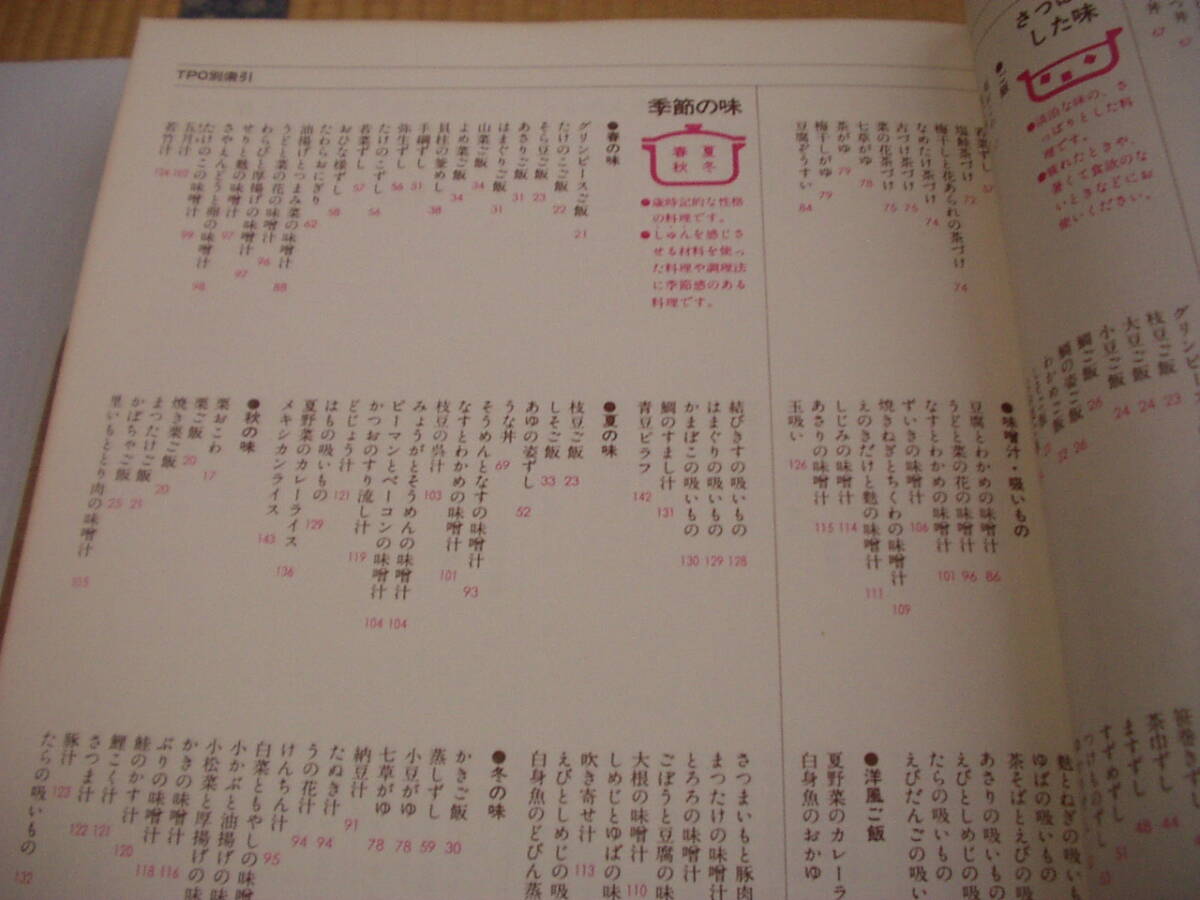 TPO別索引
さっぱり
した味
●淡泊な味の、さ
っぱりとした料
理です。
●疲れたときや、
暑くて食欲のな
いときなどにお
使いください。
●ご飯
若菜ずし 57
塩鮭茶づけ 72
梅干しと花あられの茶づけ 74
なめたけ茶づけ 74
古づけ茶づけ 75
菜の花茶づけ 75
七草がゆ 78
茶がゆ 79
梅干しがゆ 79
豆腐ぞうすい 84
●味噌汁・吸いもの
豆腐とわかめの味噌汁 86
うどと菜の花の味噌汁 96
なすとわかめの味噌汁 101
ずいきの味噌汁 106
焼きねぎとちくわの味噌汁 109
えのきだけと麩の味噌汁 111
しじみの味噌汁 114
あさりの味噌汁 115
玉吸い 126
結びきすの吸いもの 128
はまぐりの吸いもの 129
かまぼこの吸いもの 130
鯛のすまし汁 131
青豆ピラフ 142
●洋風ご飯
夏野菜のカレーラ
白身魚のおかゆ
季節の味
春夏
秋冬
●歳時記的な性格
の料理です。
●しゅんを感じさ
せる材料を使っ
た料理や調理法
に季節感のある
料理です。
●春の味
グリンピースご飯 21
たけのこご飯 22
そら豆ご飯 23
あさりご飯 31
はまぐりご飯 31
山菜ご飯 34
よめ菜ご飯 34
貝柱の釜めし 38
手綱ずし 51
弥生ずし 56
たけのこずし 56
若菜ずし 57
おひな様ずし 58
たわらおにぎり 62
油揚げとつまみ菜の味噌汁 88
うどと菜の花の味噌汁 96
わらびと厚揚げの味噌汁 97
せりと麩の味噌汁 97
さやえんどうと卵の味噌汁 98
たけのこの味噌汁 99
五月汁 102
若竹汁 126
●夏の味
枝豆ご飯 23
しそご飯 33
あゆの姿ずし 52
うな丼 69
そうめんとなすの味噌汁 93
なすとわかめの味噌汁 101
枝豆の呉汁 103
みょうがとそうめんの味噌汁 104
ピーマンとベーコンの味噌汁 104
かつおのすり流し汁 119
どじょう汁 121
はもの吸いもの 129
夏野菜のカレーライス 136
メキシカンライス 143
●秋の味
栗おこわ 17
栗ご飯 20
焼き栗ご飯 20
まつたけご飯 21
かぼちゃご飯 25
里いもととり肉の味噌汁 105
さつまいもと豚肉
まつたけの味噌汁
とろろの味噌汁
ごぼうと豆腐の味
大根の味噌汁 110
しめじとゆばの味
吹き寄せ汁 113
えびとしめじの吸
白身魚のどびん蒸
●冬の味
かきご飯 30
蒸しずし 59
小豆がゆ 78
七草がゆ 78
納豆汁 91
たぬき汁 94
うの花汁 94
けんちん汁 95
白菜ともやしの味噌
小かぶと油揚げの味
小松菜と厚揚げの味
かきの味噌汁 116
ぶりの味噌汁 118
鮭のかす汁 120
鯉こく 121
さつま汁 122
豚汁 123
たらの吸いもの 132
麩とねぎの吸いも
ゆばの吸いもの
茶そばとえびの吸
あさりの吸いもの
えびとしめじの吸
たらの吸いもの
えびだんごの吸い
枝豆ご飯 23
大豆ご飯 24
小豆ご飯 24
鯛ご飯 26
鯛の姿ご飯 26
わかめご飯 32
茶巾ずし 44
ますずし 48
すずめずし 51